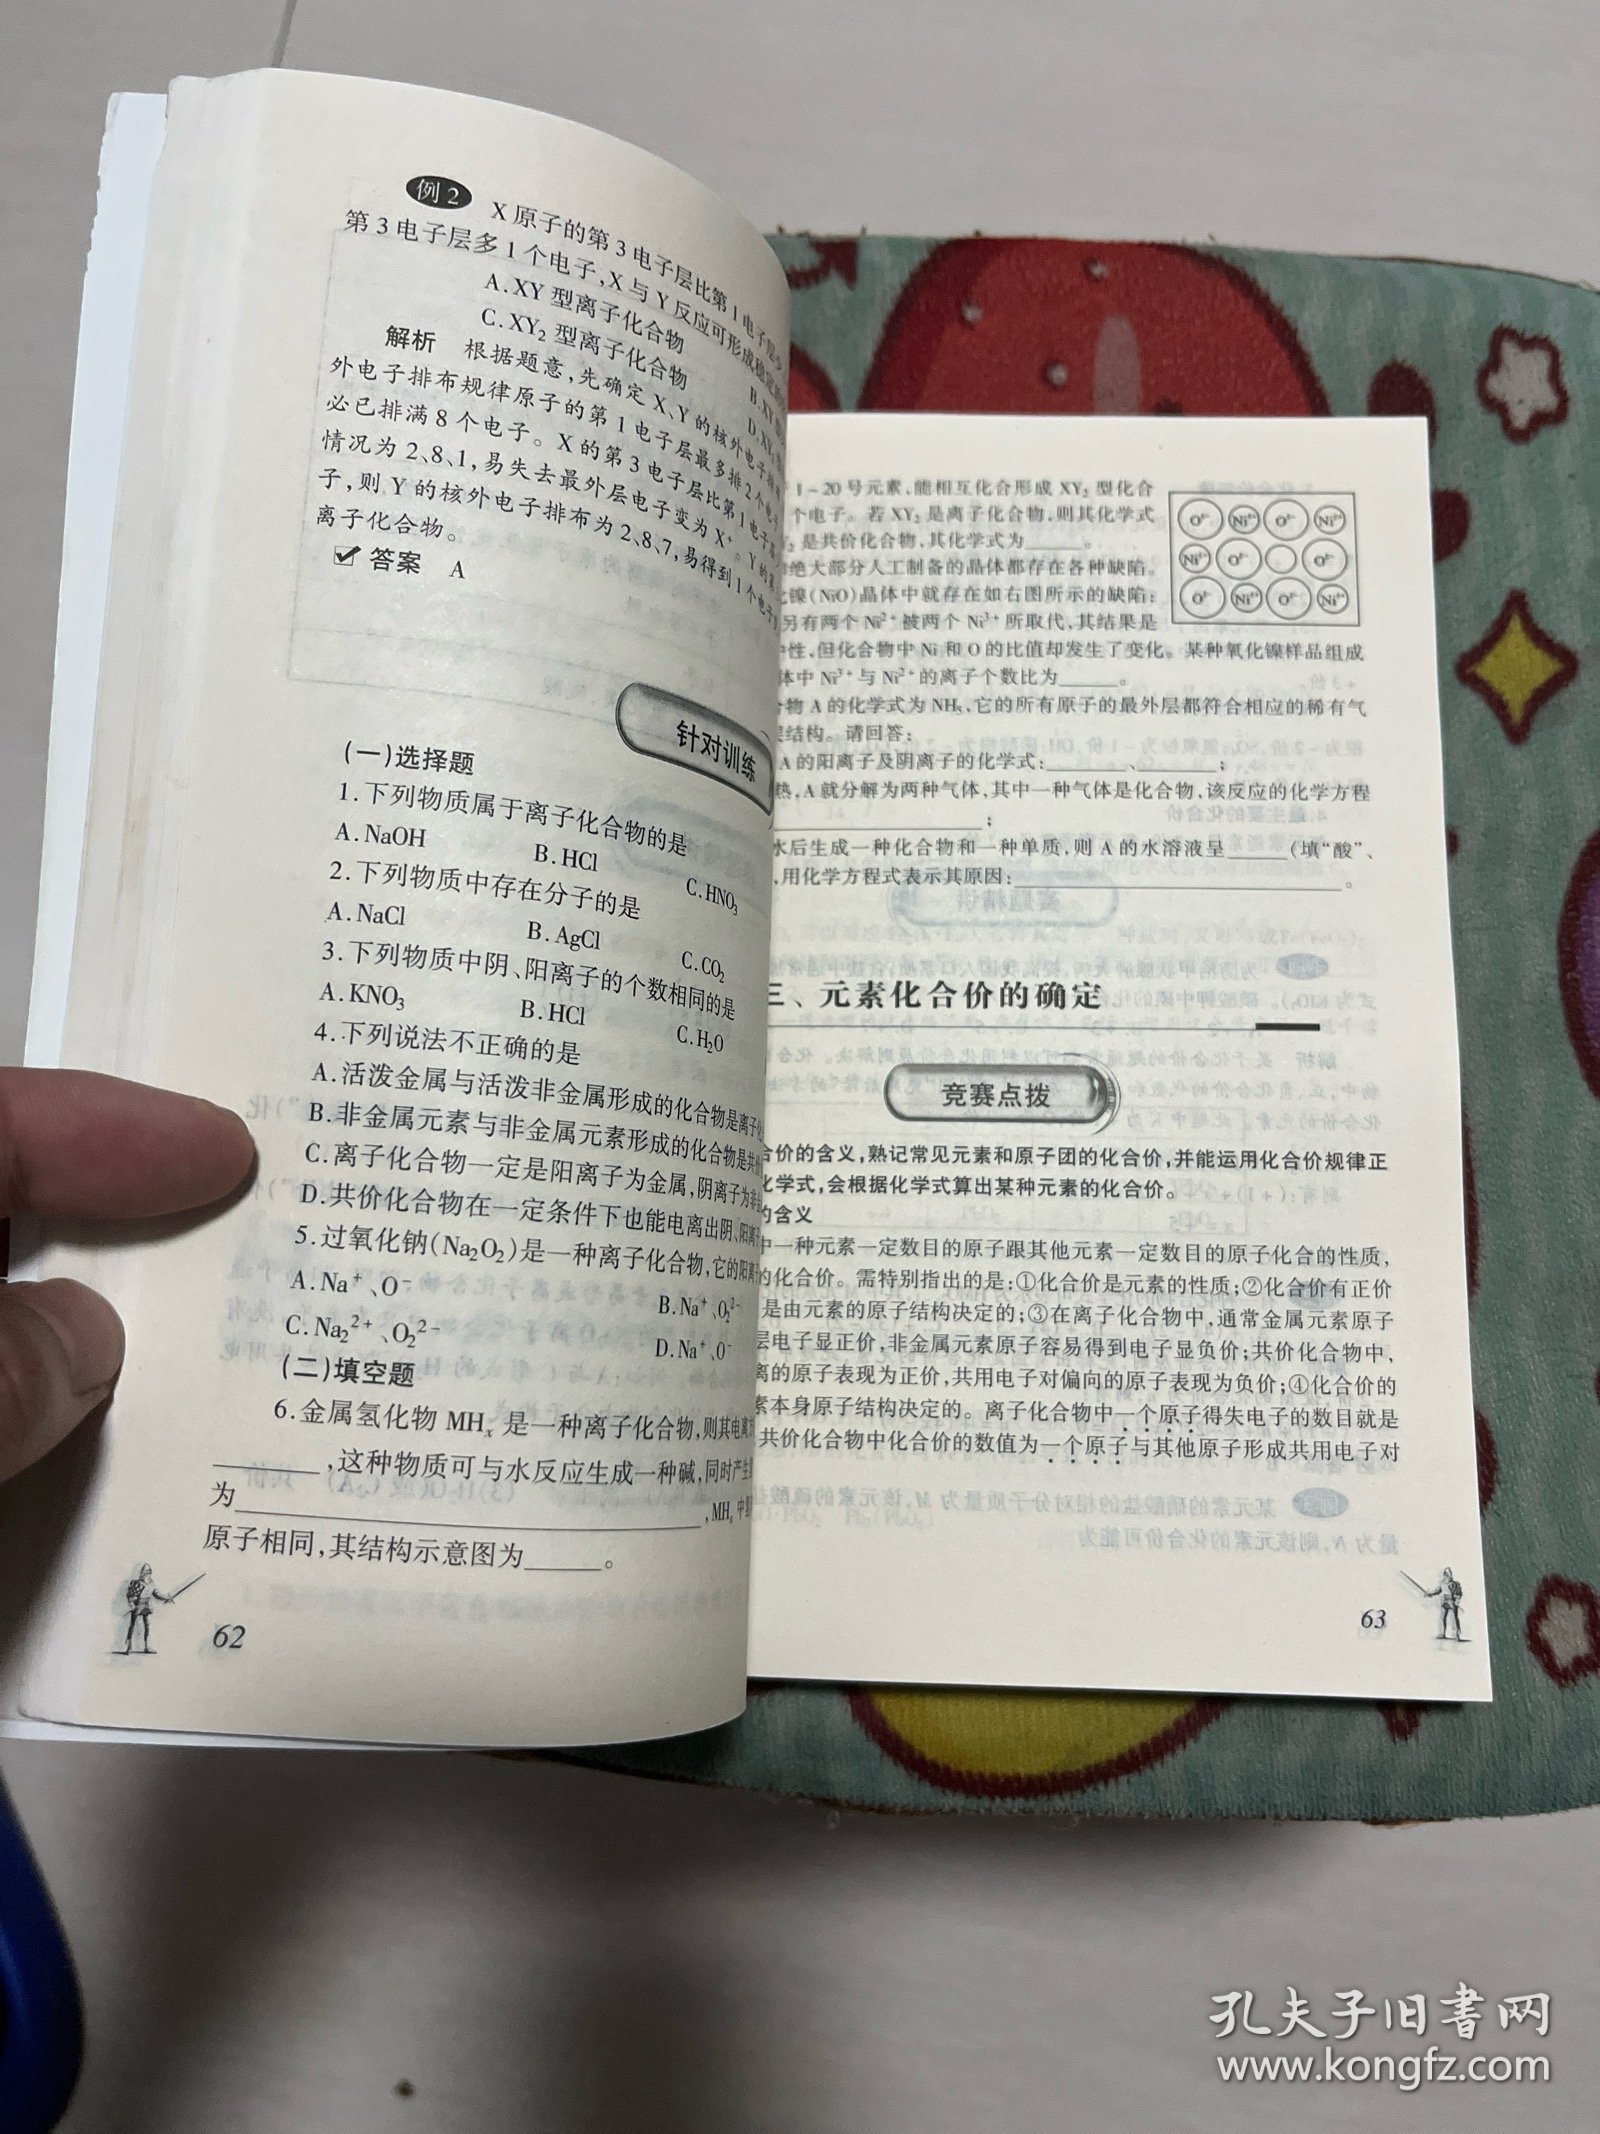 例2 X原子的第3电子层比第1电子层少
第3电子层多1个电子,X与Y反应可形成稳定的
A.XY型离子化合物
B.XY
C.XY₂型离子化合物
D.XY₂
解析 根据题意,先确定X、Y的核外电子排布
外电子排布规律原子的第1电子层最多排2个电子
必已排满8个电子。X的第3电子层比第1电子层
情况为2、8、1,易失去最外层电子变为X⁺。Y的第
子,则Y的核外电子排布为2、8、7,易得到1个电子
离子化合物。
答案 A
针对训练
(一)选择题
1.下列物质属于离子化合物的是
A.NaOH B.HCl C.HNO₃
2.下列物质中存在分子的是
A.NaCl B.AgCl C.CO₂
3.下列物质中阴、阳离子的个数相同的是
A.KNO₃ B.HCl C.H₂O
4.下列说法不正确的是
A.活泼金属与活泼非金属形成的化合物是离子化
B.非金属元素与非金属元素形成的化合物是共价
C.离子化合物一定是阳离子为金属,阴离子为非金
D.共价化合物在一定条件下也能电离出阴、阳离子
5.过氧化钠(Na₂O₂)是一种离子化合物,它的阳离子
A.Na⁺、O⁻ B.Na⁺、O₂²⁻
C.Na₂²⁺、O₂²⁻ D.Na⁺、O⁻
(二)填空题
6.金属氢化物MHₓ是一种离子化合物,则其电离方
______,这种物质可与水反应生成一种碱,同时产生
为______,MHₓ中
原子相同,其结构示意图为______。
62
1-20号元素,能相互化合形成XY₂型化合
个电子。若XY₂是离子化合物,则其化学式
₂是共价化合物,其化学式为______。
绝大部分人工制备的晶体都存在各种缺陷。
镍(NiO)晶体中就存在如右图所示的缺陷:
另有两个Ni²⁺被两个Ni³⁺所取代,其结果是
性,但化合物中Ni和O的比值却发生了变化。某种氧化镍样品组成
体中Ni³⁺与Ni²⁺的离子个数比为______。
O²⁻ Ni²⁺ O²⁻ Ni³⁺
Ni²⁺ O²⁻ O²⁻
O²⁻ Ni²⁺ O²⁻ Ni³⁺
物A的化学式为NH₅,它的所有原子的最外层都符合相应的稀有气
结构。请回答:
A的阳离子及阴离子的化学式:______、______;
热,A就分解为两种气体,其中一种气体是化合物,该反应的化学方程
______;
水后生成一种化合物和一种单质,则A的水溶液呈______(填“酸”、
,用化学方程式表示其原因:______。
三、元素化合价的确定
竞赛点拨
合价的含义,熟记常见元素和原子团的化合价,并能运用化合价规律正
化学式,会根据化学式算出某种元素的化合价。
的含义
中一种元素一定数目的原子跟其他元素一定数目的原子化合的性质,
的化合价。需特别指出的是:①化合价是元素的性质;②化合价有正价
是由元素的原子结构决定的;③在离子化合物中,通常金属元素原子
层电子显正价,非金属元素原子容易得到电子显负价;共价化合物中,
离的原子表现为正价,共用电子对偏向的原子表现为负价;④化合价的
素本身原子结构决定的。离子化合物中一个原子得失电子的数目就是
共价化合物中化合价的数值为一个原子与其他原子形成共用电子对
63
孔夫子旧书网
www.kongfz.com